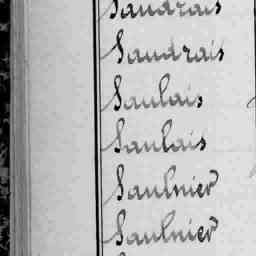 Saudrais
Saudrais
Saulais
Saulais
Saulnier
Saulnier